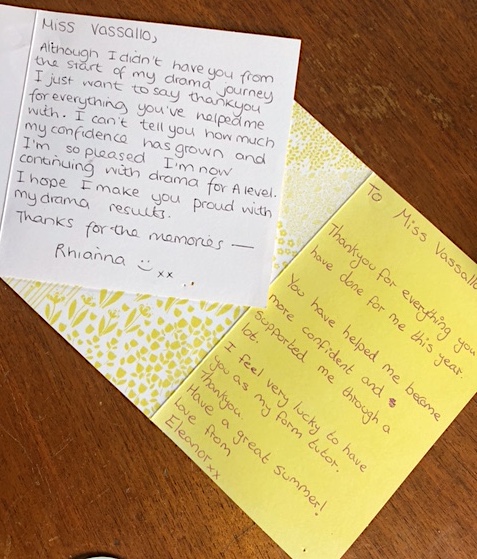 Miss Vassallo,
Although I didn't have you from
the start of my drama journey
I just want to say thankyou
for everything you've helped me
with. I can't tell you how much
my confidence has grown and
I'm so pleased I'm now
continuing with drama for A level.
I hope I make you proud with
my drama results.
Thanks for the memories —
Rhianna :) xx
To Miss Vassallo
Thankyou for everything you
have done for me this year.
You have helped me become
more confident and
supported me through a
lot.
I feel very lucky to have
you as my form tutor.
Thankyou
Have a great summer!
Love from
Eleanor xx